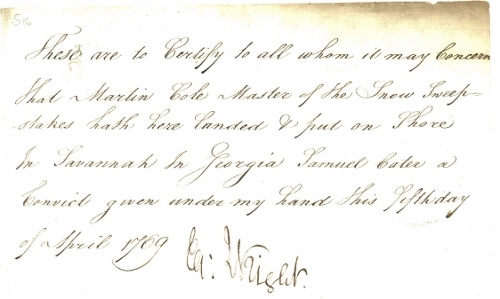 These are to Certify to all whom it may Concern
that Martin Cole Master of the Snow Sweep=
stakes hath here landed & put on Shore
In Savannah In Georgia Samuel Cater a
Convict given under my hand this fifth day
of April 1769
Wright.